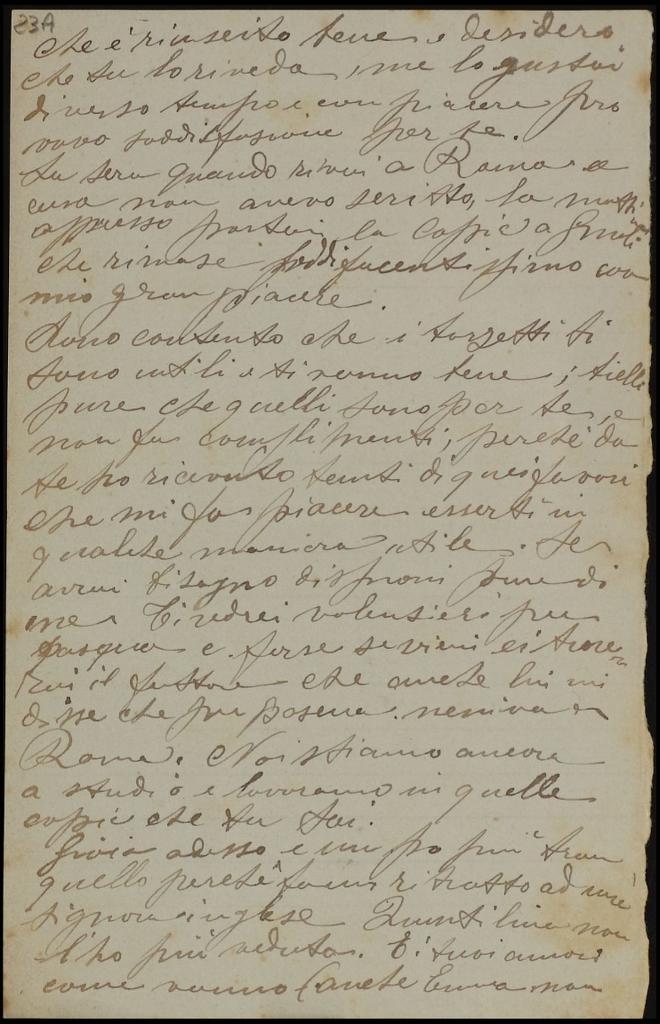 23A
che è riuscito bene e desidero
che tu lo riveda, me lo gustai
diverso tempo e con piacere pro
vavo soddisfasione per te.
La sera quando rivai a Roma a
casa non avevo scritto, la matti
appresso portai la copia a
che rimase soddisfacentissimo con
mio gran piacere.
Sono contento che i torzetti ti
sono utili e ti vanno bene; tielli
pure che quelli sono per te, e
non fa complimenti, perché da
te ho ricevuto tanti di quei favori
che mi fa piacere esserti in
qualche maniera utile. Se
avrai bisogno disponi pure di
me. Ti vedrei volentieri per
pasqua e forse se vieni ci trove=
rai il fattore che anche lui mi
disse che per pasqua veniva a
Roma. Noi stiamo ancora
a studio e lavoriamo in quelle
copie che tu sai.
Gioia adesso è un po più tran
quello perché fa un ritratto ad una
signora inglese Quintilina non
l'ho più veduta. E i tuoi amori
come vanno (anche Emma non